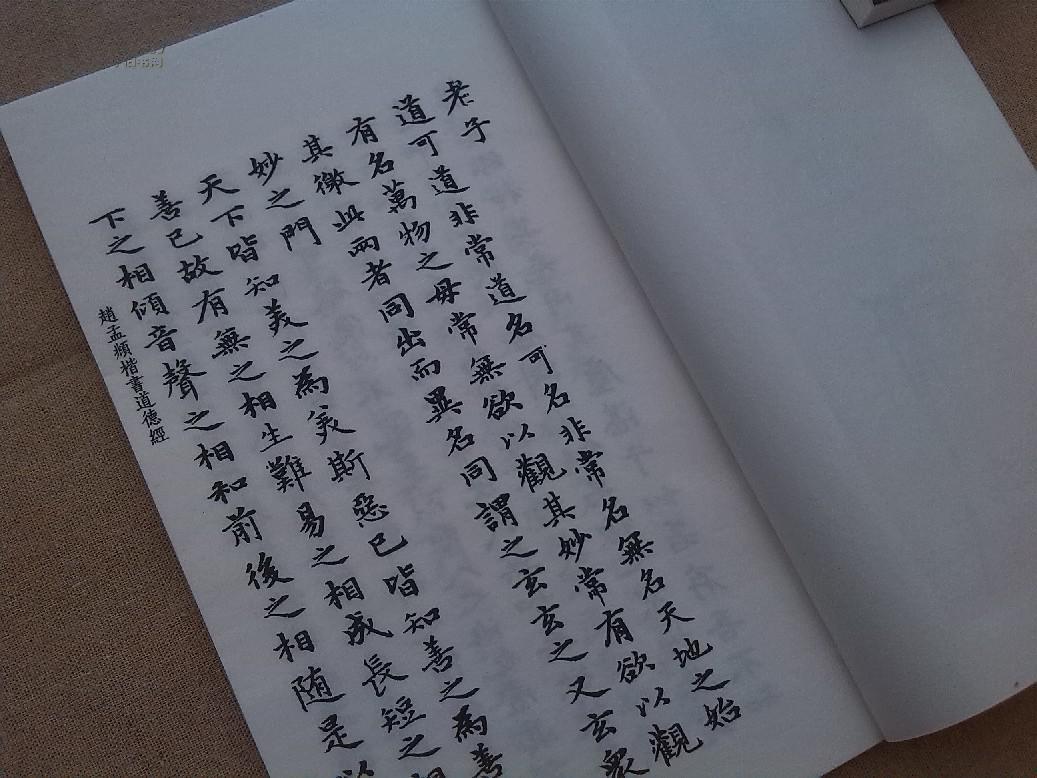 老子
道可道非常道名可名非常名無名天地之始
有名萬物之母常無欲以觀其妙常有欲以觀
其徼此兩者同出而異名同謂之玄玄之又玄衆
妙之門
天下皆知美之為美斯惡已皆知善之為善
善已故有無之相生難易之相成長短之相
下之相傾音聲之相和前後之相随是以
趙孟頫楷書道德經